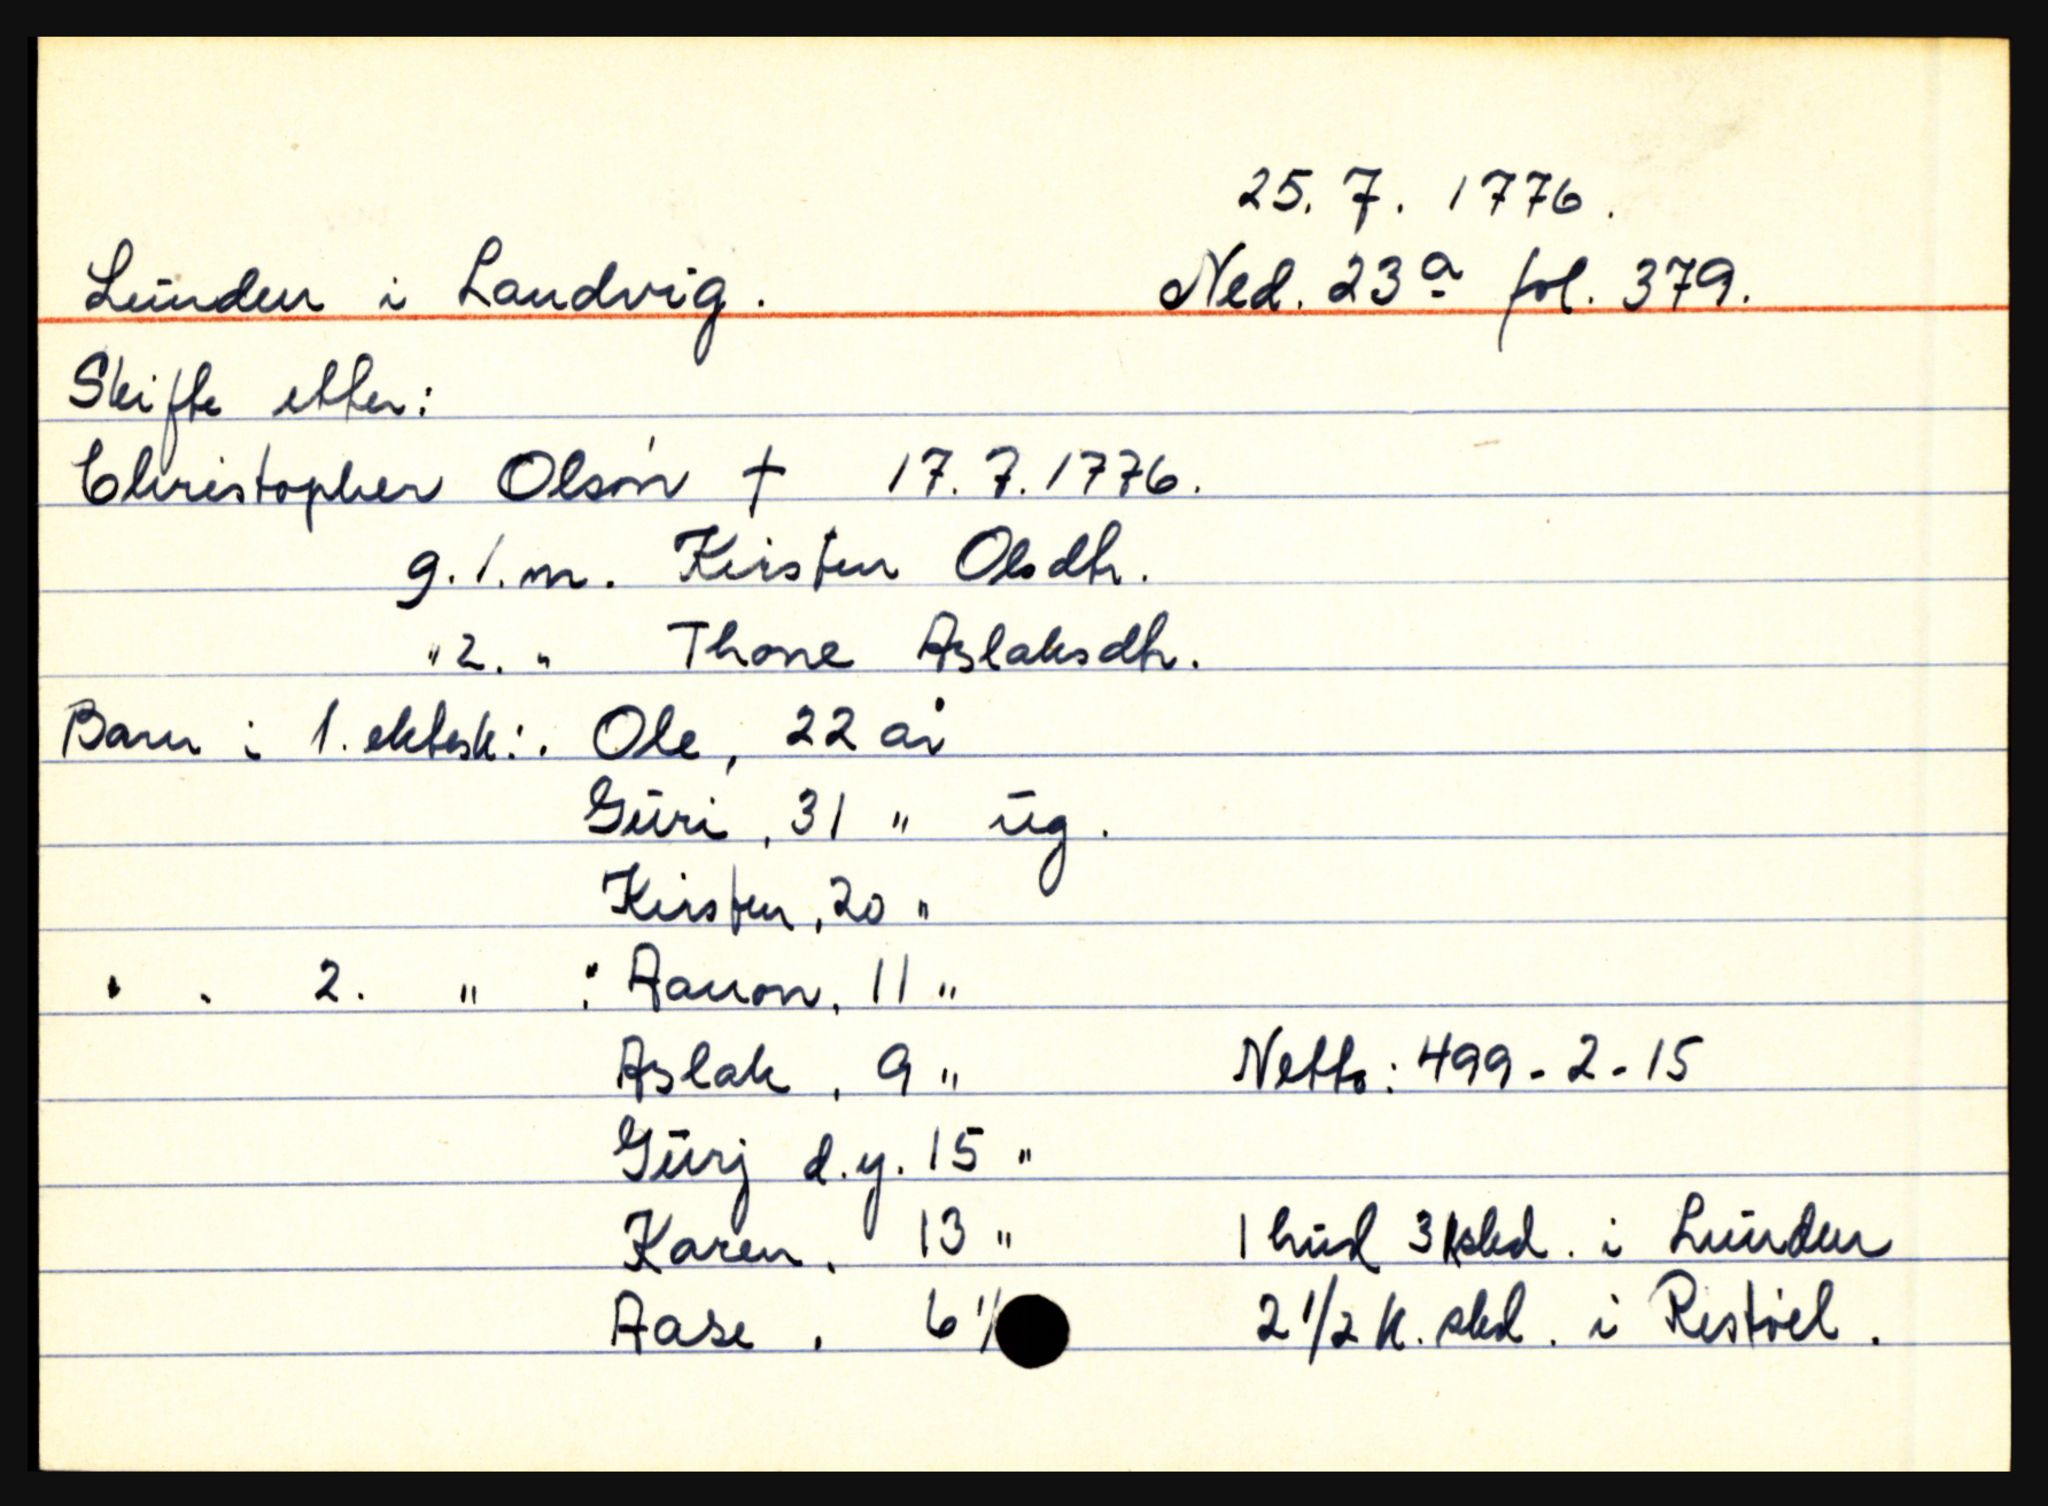 25. 7. 1776.
Lunden i Landvig. Ned. 23a fol. 379.
Skifte etter:
Christopher Olsøn † 17.7.1776.
g.1.m. Kirsten Olsdtr.
" 2. " Thone Aslaksdtr.
Barn i 1. ektesk: Ole, 22 år
Guri, 31 " ug.
Kirsten, 20 "
" " 2. " : Aanon, 11 "
Aslak, 9 " Netto: 499-2-15
Gurj d.y. 15 "
Karen, 13 " 1 hud 3 kskd. i Lunden
Aase, 6 1/ 2 1/2 k. skd. i Restøel.